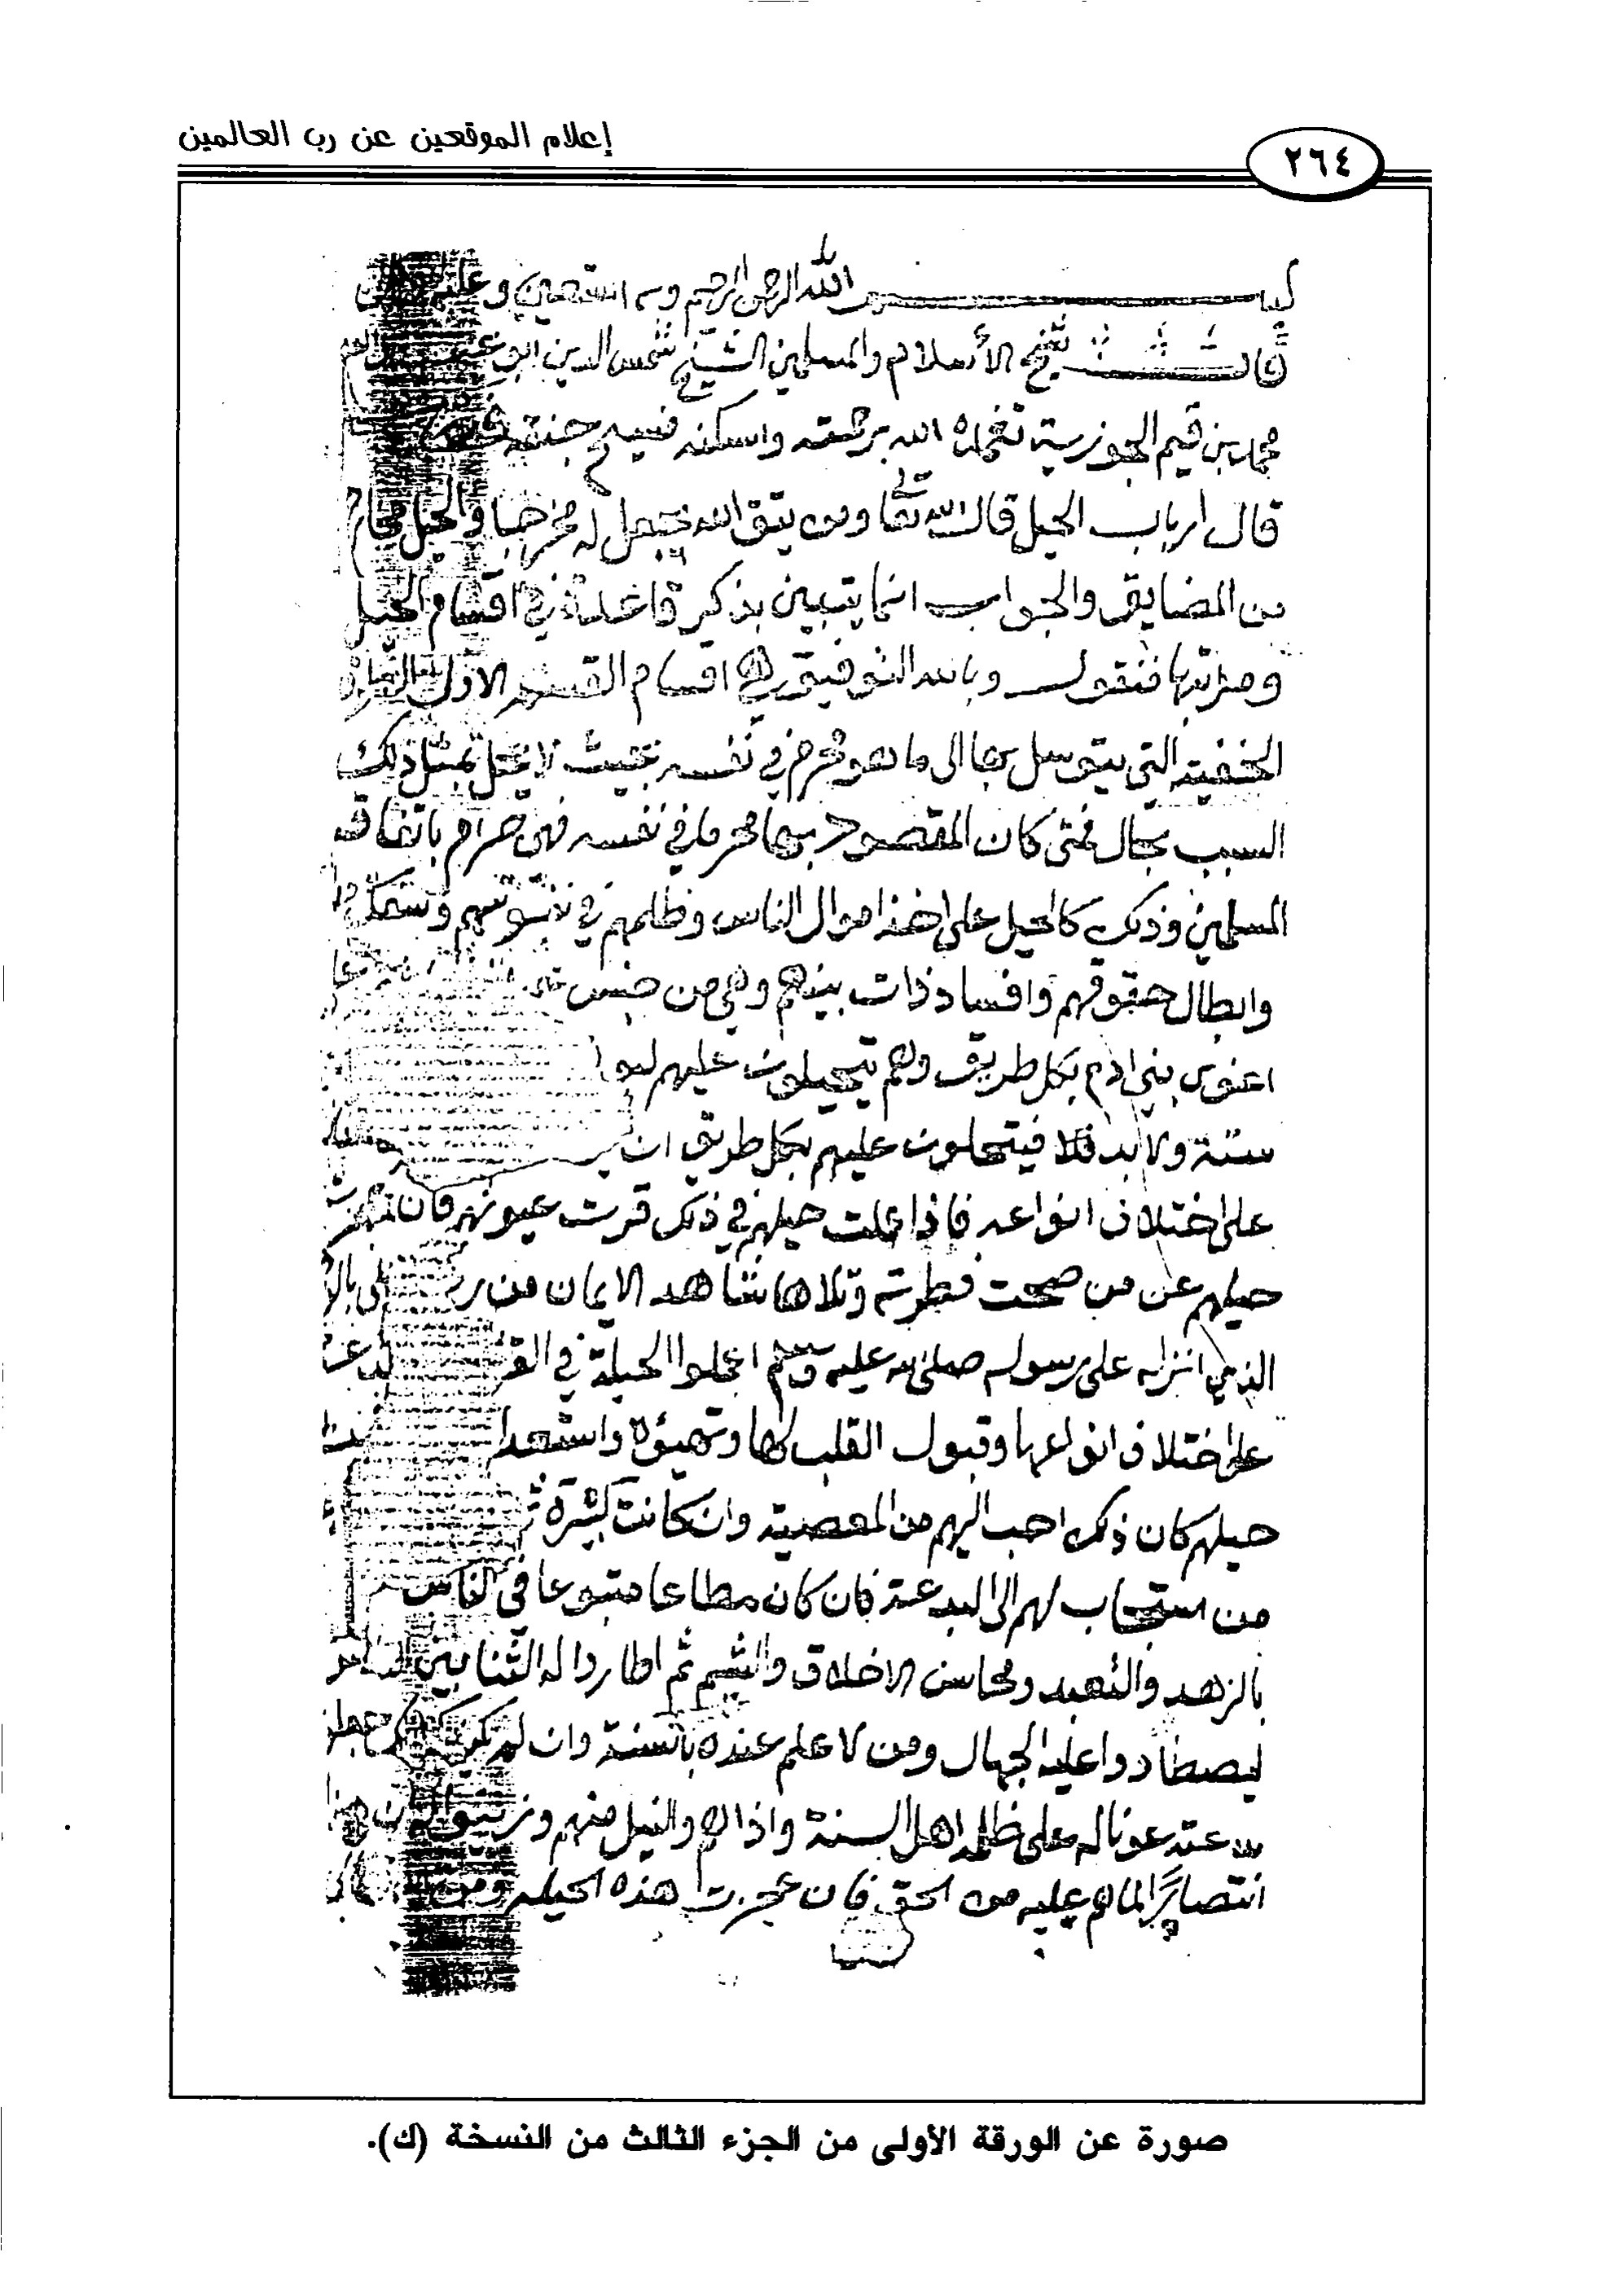 إعلام الموقعين عن رب العالمين
٢٦٤
بسم الله الرحمن الرحيم وبه استعين وعليه
قال شيخ الأسلام والمسلمين الشيخ شمس الدين ابو
محمد بن قيم الجوزية تغمده الله برحمته واسكنه فسيح جنته
قال ارباب الحيل قال الله تعا ومن يتق الله يجعل له مخرجا والحيل مخارج
من المضايق والجواب انما يتبين بذكر قاعدة في اقسام الحيل
ومراتبها فنقول وبالله التوفيق هي اقسام القسم الاول الطرق
الخفية التي يتوسل بها الى ما هو محرم في نفسه بحيث لا يحل بمثل ذلك
السبب بحال فمتى كان المقصود بها محرما في نفسه فهي حرام باتفاق
المسلمين وذلك كالحيل على اخذ اموال الناس وظلمهم في نفوسهم وسفك
وابطال حقوقهم وافساد ذات بينهم وهي من جنس
اغوى بني ادم بكل طريق وهم يتحيلون عليهم
ستة ولا بد فلا فيتحلون عليهم بكل طريق ان
على اختلاف انواعه فاذا عملت حيلهم في ذلك قرت عيونهم فان عجزت
حيلهم عن من صحت فطرته وتلاها شاهد الايمان من
الذي انزله على رسوله صلى الله عليه وسلم اعملوا الحيلة في
على اختلاف انواعها وقبول القلب لها وتهيؤه واستعداد
حيلهم كان ذلك احب اليهم من المعصية وان كانت كبيرة
من استجاب لهم الى البدعة فان كان مطاعا متبوعا في الناس
بالزهد والتعبد ومحاسن الاخلاق والشيم ثم اطاروا له الثنا بين
ليصطادوا عليه الجهال ومن لا علم عنده بالسنة وان لم يكن
بدعته عونا له على ظلمه اهل السنة واذاهم والنيل منهم وزينوا له ان هذا
انتصارا لما هم عليه من الحق فان عجزت هذه الحيلة ومن
صورة عن الورقة الأولى من الجزء الثالث من النسخة (ك).